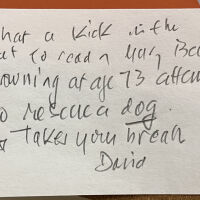 hat a kick in the
ut to read n Mary Be
owning at age 73 attem
o rescue a dog.
takes your breath
David